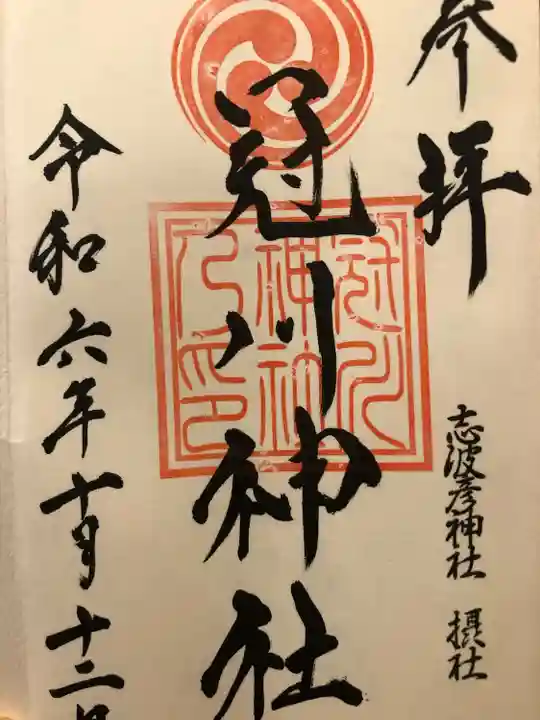 参拝
志波彦神社 摂社
冠川神社
冠川神社之印
令和六年十月十二日